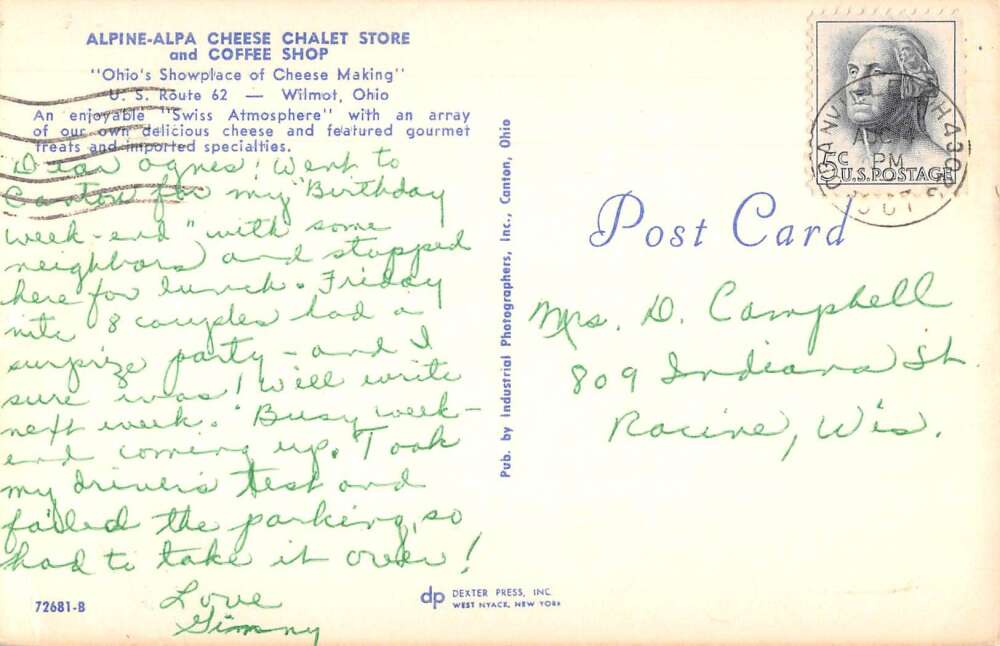 ALPINE-ALPA CHEESE CHALET STORE
and COFFEE SHOP
"Ohio's Showplace of Cheese Making"
U. S. Route 62 — Wilmot, Ohio
An enjoyable "Swiss Atmosphere" with an array
of our own delicious cheese and featured gourmet
treats and imported specialties.
Dear Agnes! Went to
Canton for my "Birthday
week-end" with some
neighbors and stopped
here for lunch. Friday
nite 8 couples had a
surprize party - and I
sure was! Will write
next week. Busy week-
end coming up. Took
my drivers test and
failed the parking, so
had to take it over!
Love
Ginny
72681-B
dp DEXTER PRESS, INC.
WEST NYACK, NEW YORK
Pub. by Industrial Photographers, Inc., Canton, Ohio
AUG
PM
5c
U.S.POSTAGE
Post Card
Mrs. D. Campbell
809 Indiana St.
Racine, Wis.